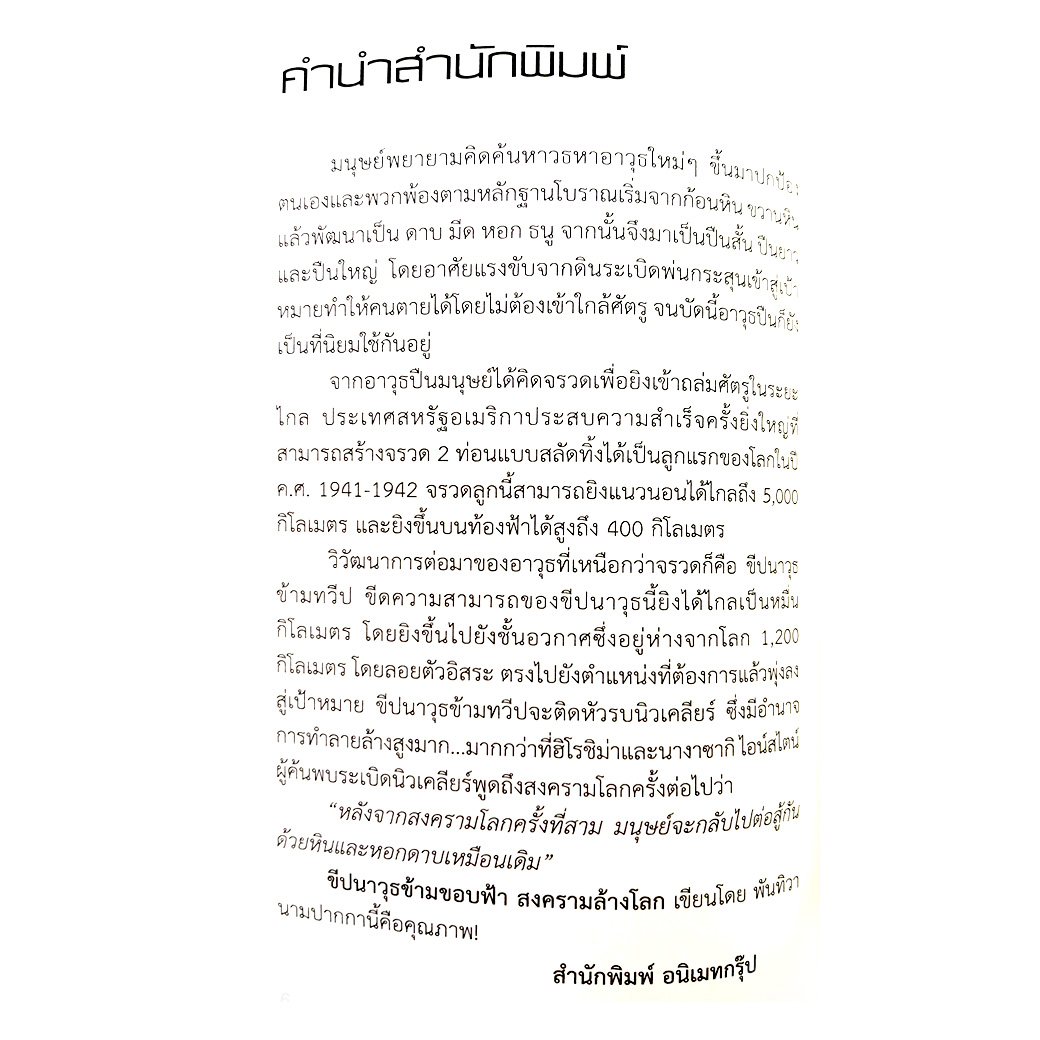 คำนำสำนักพิมพ์
มนุษย์พยายามคิดค้นหาวธหาอาวุธใหม่ๆ ขึ้นมาปกป้อง
ตนเองและพวกพ้องตามหลักฐานโบราณเริ่มจากก้อนหิน ขวานหิน
แล้วพัฒนาเป็น ดาบ มีด หอก ธนู จากนั้นจึงมาเป็นปืนสั้น ปืนยาว
และปืนใหญ่ โดยอาศัยแรงขับจากดินระเบิดพ่นกระสุนเข้าสู่เป้า
หมายทำให้คนตายได้โดยไม่ต้องเข้าใกล้ศัตรู จนบัดนี้อาวุธปืนก็ยัง
เป็นที่นิยมใช้กันอยู่
จากอาวุธปืนมนุษย์ได้คิดจรวดเพื่อยิงเข้าถล่มศัตรูในระยะ
ไกล ประเทศสหรัฐอเมริกาประสบความสำเร็จครั้งยิ่งใหญ่ที่
สามารถสร้างจรวด 2 ท่อนแบบสลัดทิ้งได้เป็นลูกแรกของโลกในปี
ค.ศ. 1941-1942 จรวดลูกนี้สามารถยิงแนวนอนได้ไกลถึง 5,000
กิโลเมตร และยิงขึ้นบนท้องฟ้าได้สูงถึง 400 กิโลเมตร
วิวัฒนาการต่อมาของอาวุธที่เหนือกว่าจรวดก็คือ ขีปนาวุธ
ข้ามทวีป ขีดความสามารถของขีปนาวุธนี้ยิงได้ไกลเป็นหมื่น
กิโลเมตร โดยยิงขึ้นไปยังชั้นอวกาศซึ่งอยู่ห่างจากโลก 1,200
กิโลเมตร โดยลอยตัวอิสระ ตรงไปยังตำแหน่งที่ต้องการแล้วพุ่งลง
สู่เป้าหมาย ขีปนาวุธข้ามทวีปจะติดหัวรบนิวเคลียร์ ซึ่งมีอำนาจ
การทำลายล้างสูงมาก...มากกว่าที่ฮิโรชิม่าและนางาซากิ ไอน์สไตน์
ผู้ค้นพบระเบิดนิวเคลียร์พูดถึงสงครามโลกครั้งต่อไปว่า
“หลังจากสงครามโลกครั้งที่สาม มนุษย์จะกลับไปต่อสู้กัน
ด้วยหินและหอกดาบเหมือนเดิม”
ขีปนาวุธข้ามขอบฟ้า สงครามล้างโลก เขียนโดย พันทิวา
นามปากกานี้คือคุณภาพ!
สำนักพิมพ์ อนิเมทกรุ๊ป
6